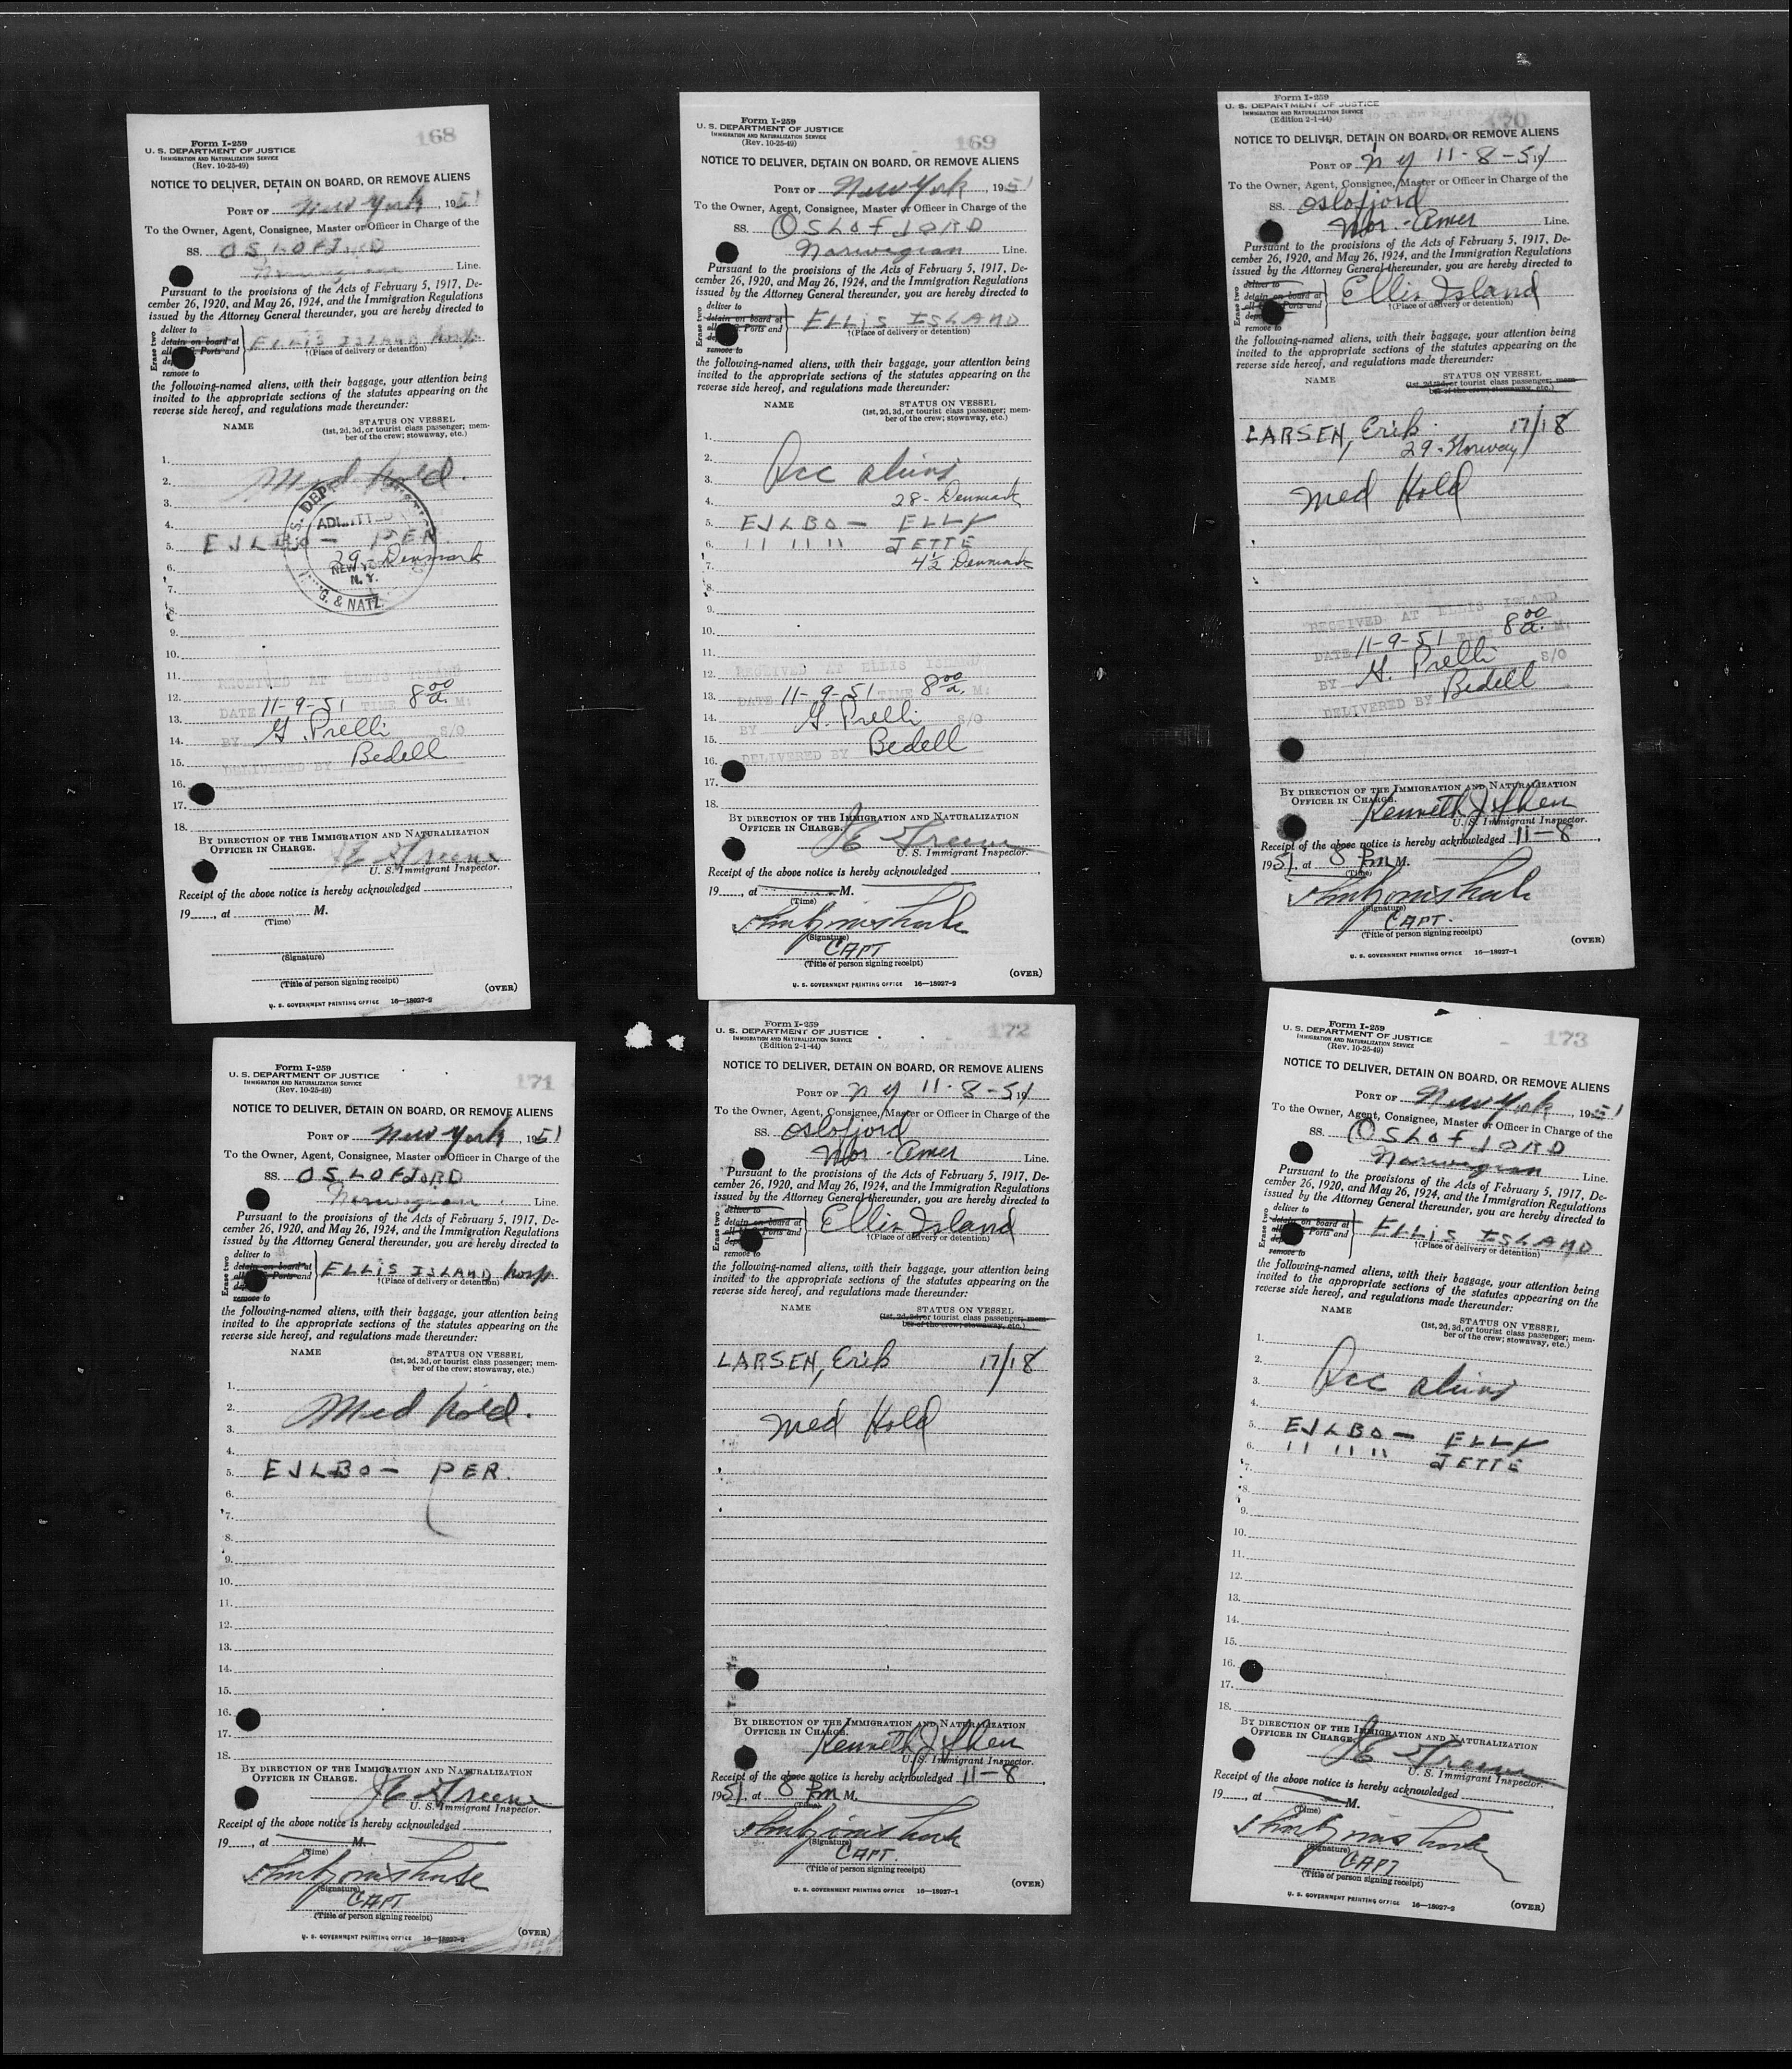 168
Form I-259
U. S. DEPARTMENT OF JUSTICE
IMMIGRATION AND NATURALIZATION SERVICE
(Rev. 10-25-49)
NOTICE TO DELIVER, DETAIN ON BOARD, OR REMOVE ALIENS
PORT OF New York, 1951
To the Owner, Agent, Consignee, Master or Officer in Charge of the
SS. OSLOFJORD
Norwegian Line.
Pursuant to the provisions of the Acts of February 5, 1917, De-
cember 26, 1920, and May 26, 1924, and the Immigration Regulations
issued by the Attorney General thereunder, you are hereby directed to
Erase two
deliver to
detain on board at
all Ports and
remove to
ELLIS ISLAND hosp.
†(Place of delivery or detention)
the following-named aliens, with their baggage, your attention being
invited to the appropriate sections of the statutes appearing on the
reverse side hereof, and regulations made thereunder:
NAME
STATUS ON VESSEL
(1st, 2d, 3d, or tourist class passenger; mem-
ber of the crew; stowaway, etc.)
1.
2. Med hold.
3.
4.
5. EJLBO - PER.
6. 29 - Denmark
ADMITTED
NEW YORK
N. Y.
G. & NATZ.
7.
8.
9.
10.
11. RECEIVED AT ELLIS ISLAND
12. DATE 11-9-51 TIME 8 00 a. M.
13. BY G. Prelli S/O
14.
15. DELIVERED BY Bedell
16.
17.
18.
BY DIRECTION OF THE IMMIGRATION AND NATURALIZATION
OFFICER IN CHARGE.
Greene
U. S. Immigrant Inspector.
Receipt of the above notice is hereby acknowledged
19, at M.
(Time)
(Signature)
(Title of person signing receipt)
(OVER)
U. S. GOVERNMENT PRINTING OFFICE 16—18927-2
169
Form I-259
U. S. DEPARTMENT OF JUSTICE
IMMIGRATION AND NATURALIZATION SERVICE
(Rev. 10-25-49)
NOTICE TO DELIVER, DETAIN ON BOARD, OR REMOVE ALIENS
PORT OF New York, 1951
To the Owner, Agent, Consignee, Master or Officer in Charge of the
SS. OSLOFJORD
Norwegian Line.
Pursuant to the provisions of the Acts of February 5, 1917, De-
cember 26, 1920, and May 26, 1924, and the Immigration Regulations
issued by the Attorney General thereunder, you are hereby directed to
Erase two
deliver to
detain on board at
all Ports and
remove to
ELLIS ISLAND
†(Place of delivery or detention)
the following-named aliens, with their baggage, your attention being
invited to the appropriate sections of the statutes appearing on the
reverse side hereof, and regulations made thereunder:
NAME
STATUS ON VESSEL
(1st, 2d, 3d, or tourist class passenger; mem-
ber of the crew; stowaway, etc.)
1.
2.
3. Acc aliens
4. 28 - Denmark
5. EJLBO - ELLY
6. 11 11 11 JETTE
7. 4½ Denmark
8.
9.
10.
11.
12. RECEIVED AT ELLIS ISLAND
13. DATE 11-9-51 TIME 8 00 a. M.
14. BY G. Prelli S/O
15.
16. DELIVERED BY Bedell
17.
18.
BY DIRECTION OF THE IMMIGRATION AND NATURALIZATION
OFFICER IN CHARGE.
Greene
U. S. Immigrant Inspector.
Receipt of the above notice is hereby acknowledged
19, at M.
(Time)
(Signature)
CAPT
(Title of person signing receipt)
(OVER)
U. S. GOVERNMENT PRINTING OFFICE 16—18927-2
170
Form I-259
U. S. DEPARTMENT OF JUSTICE
IMMIGRATION AND NATURALIZATION SERVICE
(Edition 2-1-44)
NOTICE TO DELIVER, DETAIN ON BOARD, OR REMOVE ALIENS
PORT OF n y 11-8-51
To the Owner, Agent, Consignee, Master or Officer in Charge of the
SS. Oslofjord
Nor.-Amer Line.
Pursuant to the provisions of the Acts of February 5, 1917, De-
cember 26, 1920, and May 26, 1924, and the Immigration Regulations
issued by the Attorney General thereunder, you are hereby directed to
Erase two
deliver to
detain on board at
all Ports and
remove to
Ellis Island
†(Place of delivery or detention)
the following-named aliens, with their baggage, your attention being
invited to the appropriate sections of the statutes appearing on the
reverse side hereof, and regulations made thereunder:
NAME
STATUS ON VESSEL
(1st, 2d, 3d, or tourist class passenger; mem-
ber of the crew; stowaway, etc.)
LARSEN, Erik 17/18
29 - Norway
Med Hold
RECEIVED AT ELLIS ISLAND
DATE 11-9-51 TIME 8 00 a. M.
BY G. Prelli S/O
DELIVERED BY Bedell
BY DIRECTION OF THE IMMIGRATION AND NATURALIZATION
OFFICER IN CHARGE.
Kenneth J
U. S. Immigrant Inspector.
Receipt of the above notice is hereby acknowledged 11-8
1951, at 8 Pm M.
(Time)
(Signature)
CAPT.
(Title of person signing receipt)
(OVER)
U. S. GOVERNMENT PRINTING OFFICE 16—18927-1
171
Form I-259
U. S. DEPARTMENT OF JUSTICE
IMMIGRATION AND NATURALIZATION SERVICE
(Rev. 10-25-49)
NOTICE TO DELIVER, DETAIN ON BOARD, OR REMOVE ALIENS
PORT OF New York, 1951
To the Owner, Agent, Consignee, Master or Officer in Charge of the
SS. OSLOFJORD
Norwegian Line.
Pursuant to the provisions of the Acts of February 5, 1917, De-
cember 26, 1920, and May 26, 1924, and the Immigration Regulations
issued by the Attorney General thereunder, you are hereby directed to
Erase two
deliver to
detain on board at
all Ports and
remove to
ELLIS ISLAND hosp.
†(Place of delivery or detention)
the following-named aliens, with their baggage, your attention being
invited to the appropriate sections of the statutes appearing on the
reverse side hereof, and regulations made thereunder:
NAME
STATUS ON VESSEL
(1st, 2d, 3d, or tourist class passenger; mem-
ber of the crew; stowaway, etc.)
1.
2. Med hold.
3.
4.
5. EJLBO - PER.
6.
7.
8.
9.
10.
11.
12.
13.
14.
15.
16.
17.
18.
BY DIRECTION OF THE IMMIGRATION AND NATURALIZATION
OFFICER IN CHARGE.
Greene
U. S. Immigrant Inspector.
Receipt of the above notice is hereby acknowledged
19, at M.
(Time)
(Signature)
CAPT
(Title of person signing receipt)
(OVER)
U. S. GOVERNMENT PRINTING OFFICE 16—18927-2
172
Form I-259
U. S. DEPARTMENT OF JUSTICE
IMMIGRATION AND NATURALIZATION SERVICE
(Edition 2-1-44)
NOTICE TO DELIVER, DETAIN ON BOARD, OR REMOVE ALIENS
PORT OF n y 11-8-51
To the Owner, Agent, Consignee, Master or Officer in Charge of the
SS. Oslofjord
Nor.-Amer Line.
Pursuant to the provisions of the Acts of February 5, 1917, De-
cember 26, 1920, and May 26, 1924, and the Immigration Regulations
issued by the Attorney General thereunder, you are hereby directed to
Erase two
deliver to
detain on board at
all Ports and
remove to
Ellis Island
†(Place of delivery or detention)
the following-named aliens, with their baggage, your attention being
invited to the appropriate sections of the statutes appearing on the
reverse side hereof, and regulations made thereunder:
NAME
STATUS ON VESSEL
(1st, 2d, 3d, or tourist class passenger; mem-
ber of the crew; stowaway, etc.)
LARSEN, Erik 17/18
Med Hold
BY DIRECTION OF THE IMMIGRATION AND NATURALIZATION
OFFICER IN CHARGE.
Kenneth J
U. S. Immigrant Inspector.
Receipt of the above notice is hereby acknowledged 11-8
1951, at 8 Pm M.
(Time)
(Signature)
CAPT.
(Title of person signing receipt)
(OVER)
U. S. GOVERNMENT PRINTING OFFICE 16—18927-1
173
Form I-259
U. S. DEPARTMENT OF JUSTICE
IMMIGRATION AND NATURALIZATION SERVICE
(Rev. 10-25-49)
NOTICE TO DELIVER, DETAIN ON BOARD, OR REMOVE ALIENS
PORT OF New York, 1951
To the Owner, Agent, Consignee, Master or Officer in Charge of the
SS. OSLOFJORD
Norwegian Line.
Pursuant to the provisions of the Acts of February 5, 1917, De-
cember 26, 1920, and May 26, 1924, and the Immigration Regulations
issued by the Attorney General thereunder, you are hereby directed to
Erase two
deliver to
detain on board at
all Ports and
remove to
ELLIS ISLAND
†(Place of delivery or detention)
the following-named aliens, with their baggage, your attention being
invited to the appropriate sections of the statutes appearing on the
reverse side hereof, and regulations made thereunder:
NAME
STATUS ON VESSEL
(1st, 2d, 3d, or tourist class passenger; mem-
ber of the crew; stowaway, etc.)
1.
2.
3. Acc aliens
4.
5. EJLBO - ELLY
6. 11 11 11 JETTE
7.
8.
9.
10.
11.
12.
13.
14.
15.
16.
17.
18.
BY DIRECTION OF THE IMMIGRATION AND NATURALIZATION
OFFICER IN CHARGE.
Greene
U. S. Immigrant Inspector.
Receipt of the above notice is hereby acknowledged
19, at M.
(Time)
(Signature)
CAPT
(Title of person signing receipt)
(OVER)
U. S. GOVERNMENT PRINTING OFFICE 16—18927-2